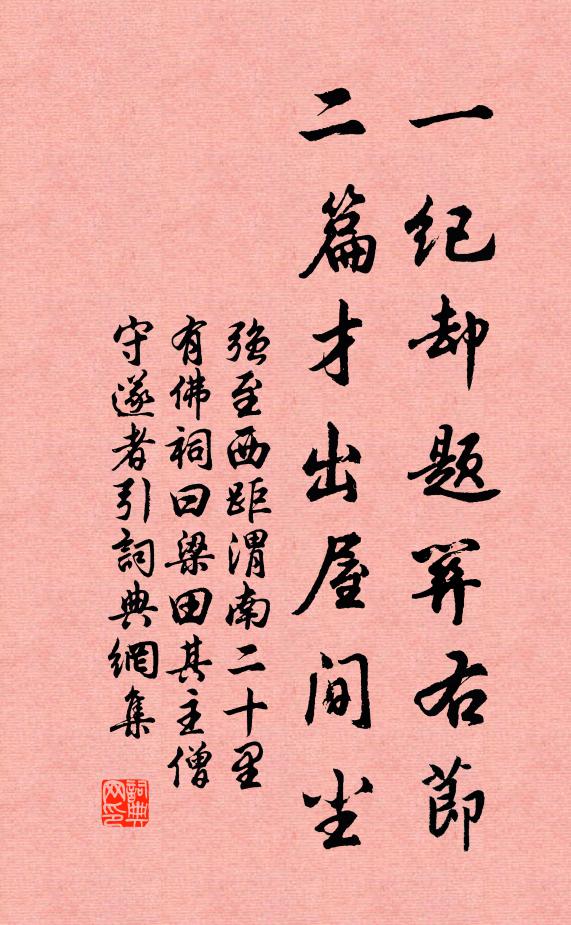 一紀却题關右節
二篇才出屋間尘
强至西距渭南二十里
有佛祠曰梁田其主僧
守遂者引詞典網集
詞典网印